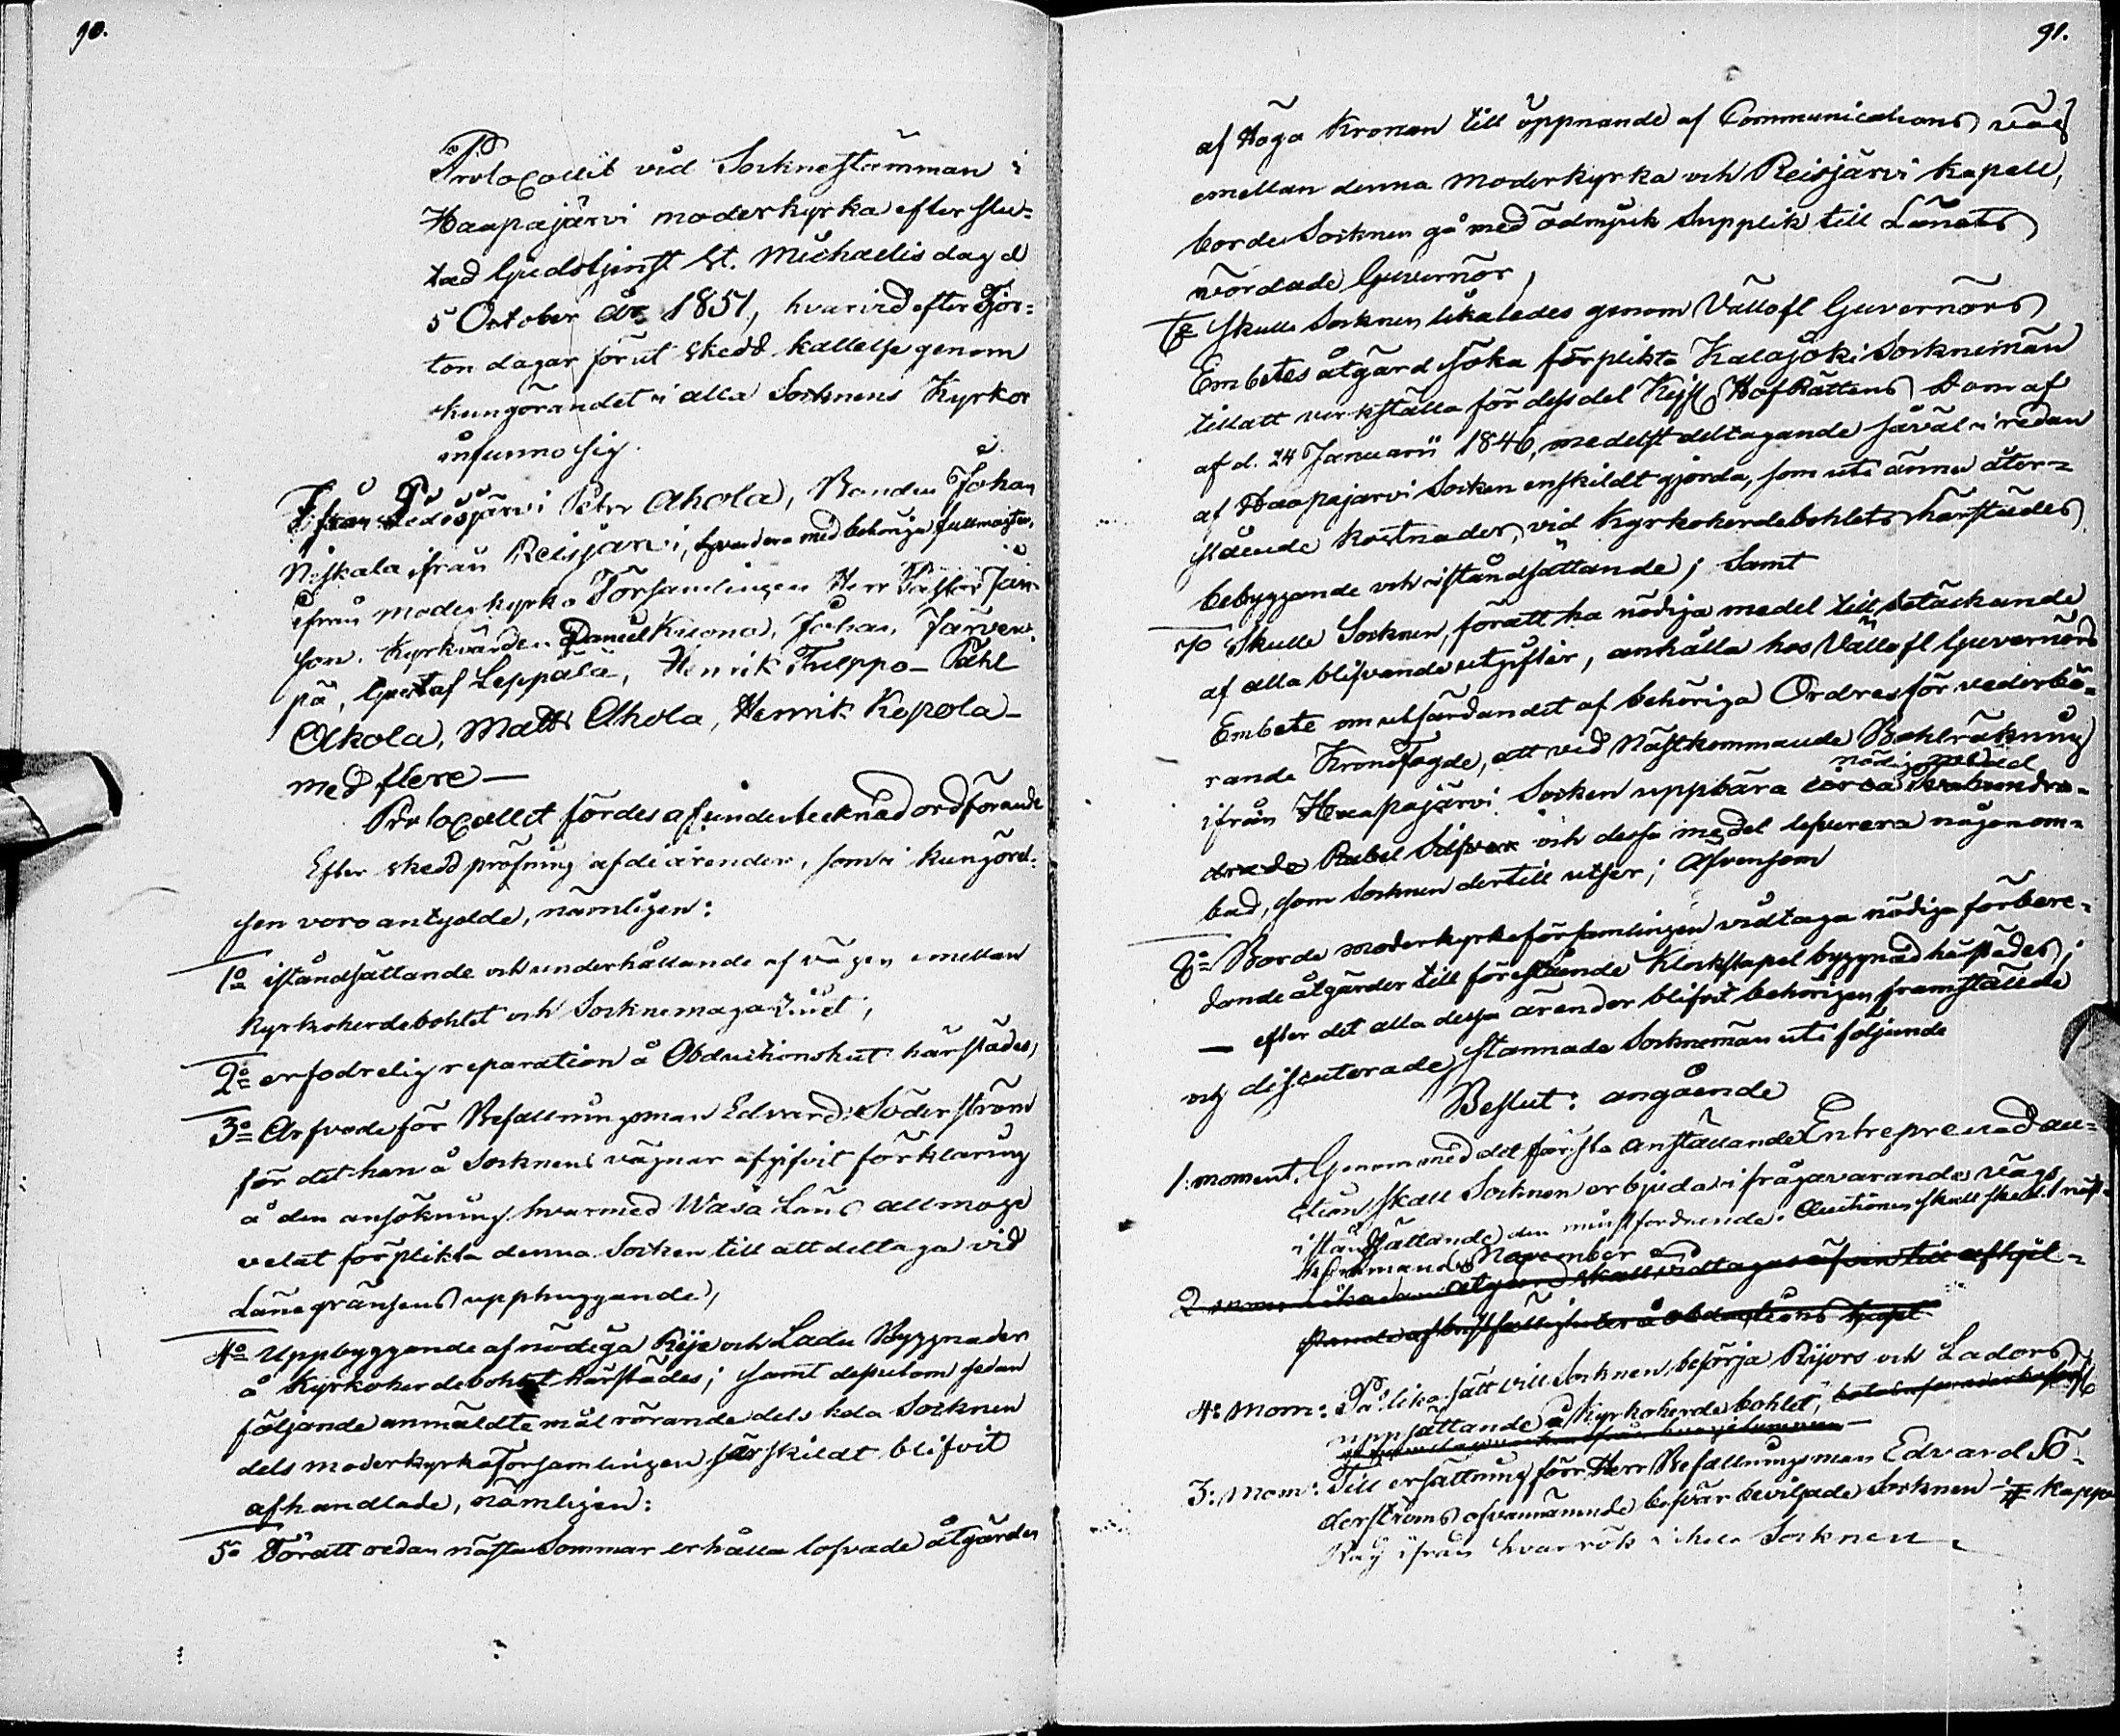 90.
Protocollet vid Socknestämman i
Haapajärvi moderkyrka efter slu-
tad Gudstjenst St. Michaelis dag d
5 October år 1851, hvarvid efter Fjor-
ton dagar förut skedd kallelse genom
kungörandet i alla Socknens Kyrkor
infunno sig.
Ifrån Pidisjärvi Petter Ahola, Bonden Johan
Niskala ifrån Reisjärvi, hvardera med behöriga fullmagter,
ifrån moderkyrko Församlingen Herr Pastor
son. Kyrkvärden Daniel Kuona, Johan Järven-
pä, Gustaf Leppälä, Henrik Filppo- Påhl
Akola, Matts Ahola, Henrik Kopola-
med flere-
Protocollet fördes af undertecknad ordförande
Efter skedd pröfning af de ärender, som i kungörel-
sen voro antydde, nämligen:
1o iståndsättande och underhållande af vägen emellan
Kyrkoherdebohlet och Socknemagazinet,
2o erfodrelig reparation å Obductionshut härstädes,
3o Arfvode för Befallningsman Edvard Söderström
för det han å Socknens vägnar afgifvit förklaring
å den ansökning hvarmed Wasa Läns allmoge
velat förplikta denna Socken till att deltaga vid
Länegränsens upphuggande,
4o Uppbyggande af nödiga Rije och Ladu Byggnader
å Kyrkoherdebohlet härstädes; samt desutom sedan
följande anmäldte mål rörande dels hela Socknen
dels moderkyrkoförsamlingen särskildt blifvit
afhandlade, nämligen:
5o Föratt redan nästa Sommar erhålla lofvade åtgärder
91.
af Höga Kronan till öppnande af Communications väg
emellan denna Moderkyrka och Reisjärvi Kapell,
borde Socknen gå med ödmjuk Supplik till Länets
vördade Guvernör,
6o skulle Socknen likaledes genom Vällofl Guvernörs
Embetes åtgärd söka förplikta Kalajoki Sockneman
till att verkställa för dess del Kejs HofRättens Dom af
af d. 24 Januarii 1846, medelst deltagande såväl i redan
af Haapajärvi Socken enskildt gjorda, som uti ännu åter-
stående kostnader, vid Kyrkoherdebohlets härstädes
bebyggande och iståndsättande; samt
7o Skulle Socknen, föratt ha nödiga medel till betäckande
af alla blifvande utgifter, anhålla hos Vällofl Guvernörs
Embete om utfärdandet af behöriga Ordres för vederbö-
rande KronoFogde, att vid nästkommande Bohlräkning
nödig medel
ifrån Haapajärvi Socken uppbära circa tvåhundra-
drade Rubel Silfver och dessa medel lefverera någon om-
bud, som Socknen dertill utser; Äfvensom
8o Borde moderkyrkoförsamlingen vidtaga nödiga förbere-
dande åtgärder till förestående Klockstapel byggnad härstädes;
— efter det alla dessa ärender blifvit behörigen framställde
och discuterade, stannade Socknemän uti följande
Beslut: angående
1. moment. Genom med det första anställande Entreprenad au-
ction skall Socknen erbjuda ifrågavarande vägs
iståndsättande den minstfordrande. Auctionen skall sked 1 näst-
kommande November
2 mom: likadan åtgärd skall vidtagas äfven till afhjel-
pande af bristfälligheter å obductions huset
4: Mom: På lika sätt vill Socknen besörja Rijors och Ladors
uppsättande å Kyrkoherde bohlet,
3: Mom: Till ersättning för Herr Befallningsman Edvard Sö-
derströms ofvannämnde besvär beviljade Socknen kappa
Råg ifrån hvar rök i hela Socknen